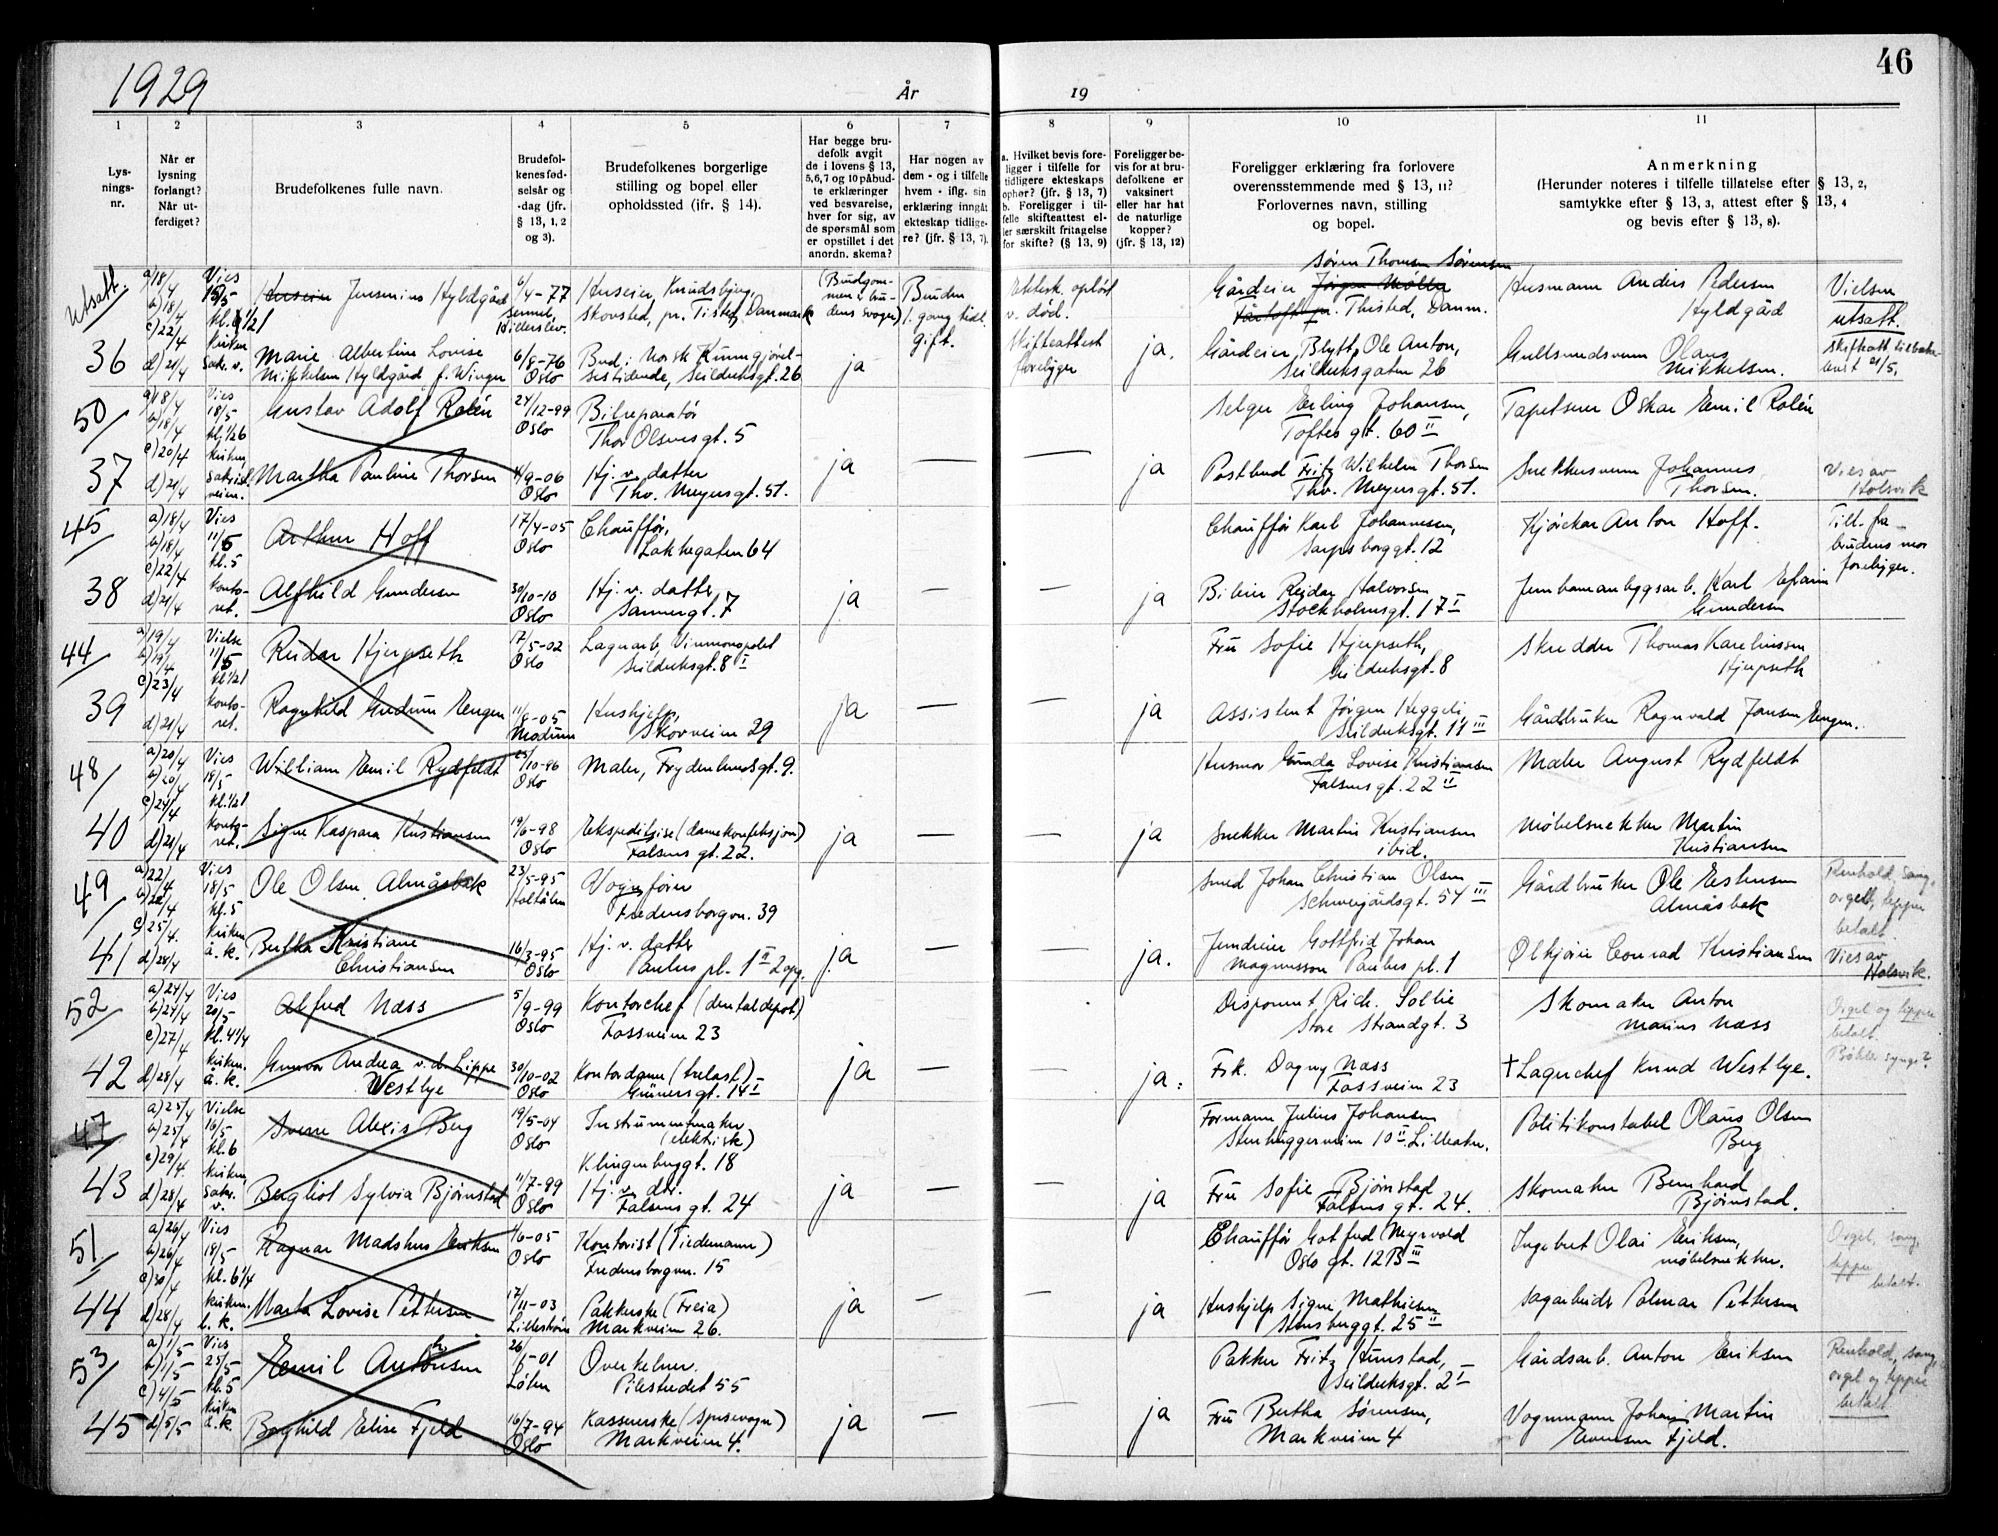 1929
År
19
46
1
2
3
4
5
6
7
8
9
10
11
Lys-
nings-
nr.
Når er
lysning
forlangt?
Når ut-
ferdiget?
Brudefolkenes fulle navn.
Brudefol-
kenes fød-
selsår og
-dag (jfr.
§ 13, 1, 2
og 3).
Brudefolkenes borgerlige
stilling og bopel eller
opholdssted (jfr. § 14).
Har begge bru-
defolk avgit
de i lovens § 13,
5,6,7 og 10 påbud-
te erklæringer
ved besvarelse,
hver for sig, av
de spørsmål som
er opstillet i det
anordn. skema?
Har nogen av
dem - og i tilfelle
hvem - iflg. sin
erklæring inngåt
ekteskap tidlige-
re? (jfr. § 13, 7).
a. Hvilket bevis fore-
ligger i tilfelle for
tidligere ekteskaps
ophør? (jfr. § 13, 7)
b. Foreligger i til-
felle skifteattest el-
ler særskilt fritagelse
for skifte? (§ 13, 9)
Foreligger be-
vis for at bru-
defolkene er
vaksinert
eller har hat
de naturlige
kopper?
(jfr. § 13, 12)
Foreligger erklæring fra forlovere
overensstemmende med § 13, 11?
Forlovernes navn, stilling
og bopel.
Anmerkning
(Herunder noteres i tilfelle tillatelse efter § 13, 2,
samtykke efter § 13, 3, attest efter § 13, 4
og bevis efter § 13, 8).
Utsatt.
36
a) 18/4
b) 18/4
c) 22/4
d) 21/4
Vies
kirken
Jensenius Hyldgård
6/4-77
Huseier, Knudsbjerg,
Skovsted, pr. Tisted, Danmark
Bruden
1. gang tidl.
gift.
Ektesk. opløst
v. død.
Skifteattest
foreligger
Søren Thomsen Sørensen
Gårdeier
Thisted, Danm.
Husmann Anders Pedersen
Hyldgård
Vielsen
utsatt.
Marie Albertine Lovise
Mikkelsen Hyldgård f. Winger
6/8-76
Oslo
Bud i Norsk Kunngjørel-
sestidende, Seilduksgt. 26
ja
ja.
Gårdeier Blytt, Ole Anton,
Seilduksgaten 26
Gullsmedsvenn Olaus
Mikkelsen.
50
37
a) 18/4
b) 18/4
c) 20/4
d) 21/4
Vies
18/5
Gustav Adolf Rolén
24/12-99
Oslo
Bilreparatør
Thor Olsensgt. 5
Selger Erling Johansen,
Toftes gt. 60 II
Tapetserer Oskar Emil Rolén
Martha Pauline Thorsen
4/9-06
Oslo
Hj. v. datter
Thv. Meyersgt. 51.
ja
—
—
ja
Postbud Fritz Wilhelm Thorsen
Thv. Meyersgt. 51.
Snekkersvenn Johannes
Thorsen.
Vies av
Holsvik
45
38
a) 18/4
b) 18/4
c) 22/4
d) 21/4
Vies
11/5
kl. 5
konto-
ret.
Arthur Hoff
17/4-05
Oslo
Chauffør,
Lakkegaten 64
Chauffør Karl Johannesen,
Sarpsborggt. 12
Kjørekar Anton Hoff.
Till. fra
brudens mor
foreligger.
Alfhild Gundersen
30/10-10
Oslo
Hj. v. datter
Sannergt. 7
ja
—
—
ja
Bileier Reidar Halvorsen
Stockholmsgt. 17 I
Jernbaneanbygsarb. Karl Efraim
Gundersen
44
39
a) 19/4
b) 19/4
c) 23/4
d) 21/4
Vielse
11/5
konto-
ret.
Reidar Hjerpseth
17/5-02
Oslo
Lagerarb. Vinmonopolet
Seilduksgt. 8 I
Fru Sofie Hjerpseth,
Seilduksgt. 8
Skredder Thomas Kareliussen
Hjerpseth
Ragnhild Gudrun Eengen
11/8-05
Modum
Hushjelp,
Skovveien 29
ja
—
—
ja
Assistent Jørgen Heggeli,
Seilduksgt. 11 III
Gårdbruker Ragnvald Jansen Eengen.
48
40
a) 20/4
b) 20/4
c) 24/4
d) 21/4
Vies
18/5
konto-
ret.
William Emil Rydfeldt
25/10-96
Oslo
Maler, Frydenlundsgt. 9.
Husmor Gunda Lovise Kristiansen
Falsensgt. 22 II
Maler August Rydfeldt
Signe Kaspara Kristiansen
19/6-98
Oslo
Ekspeditrise (damekonfeksjon)
Falsens gt. 22.
ja
—
—
ja
Snekker Martin Kristiansen
ibid.
Møbelsnekker Martin
Kristiansen
49
41
a) 22/4
b) 22/4
c) 25/4.
d) 28/4
Vies
18/5
kl. 5
kirken
å. k.
Ole Olsen Almåsbak
23/5-95
Holtålen
Vognfører
Fredensborgvn. 39
Smed Johan Christian Olsen
Schweigårdsgt. 54 III
Gårdbruker Ole Estensen
Almåsbak
Renhold, sang,
orgel, tepper
betalt.
Bertha Kristiane
Christiansen
16/3-95
Oslo
Hj. v. datter
Paulus pl. 1 II 2 opg.
ja
—
—
ja.
Jerndreier Gottfrid Johan
Magnusson Paulus pl. 1
Ølkjører Conrad Kristiansen
Vies av
Holsvik.
52
42
a) 24/4
b) 24/4
c) 27/4
d) 28/4
Vies
20/5
kirken.
å. k.
Alfred Næss
5/9-99
Oslo
Kontorchef (dentaldepot)
Fossveien 23
Disponent Rich. Sollie
Store Strandgt. 3
Skomaker Anton
Marius Næss
Orgel og tepper
betalt.
Gunvor Andrea v. d. Lippe
Westbye
30/10-02
Oslo
Kontordame (trelast)
Grünersgt. 14 I
ja
—
ja.
Frk. Dagny Næss
Fossveien 23
† Lagerchef Knud Westbye.
47
43
a) 25/4
b) 25/4
c) 29/4.
d) 28/4
Vielse
16/5
kl. 6
kirken
Sverre Alexis Berg
19/5-04
Oslo
Instrumentmaker
(elektrisk)
Klingenberggt. 18
Formann Julius Johansen
Stenhuggerveien 10 II, Lilleaker.
Politikonstabel Olaus Olsen
Berg
Bergliot Sylvia Bjørnstad
11/7-99
Oslo
Hj. v. dtr.
Falsens gt. 24
ja
—
—
ja
Fru Sofie Bjørnstad
Falsens gt. 24.
Skomaker Bernhard
Bjørnstad.
51
44
a) 26/4
b) 26/4
c) 30/4
d) 28/4
Vies
18/5
kl. 6 1/4
kirken.
Ragnar Madshus Eriksen
Oslo
Kontorist (Tiedemann)
Fredensborgvn. 15
Chauffør Gotfred Myrvold
Oslo gt. 12 B III
Ingebret Olai Eriksen,
møbelsnekker.
Orgel, sang,
tepper
betalt.
Marta Lovise Pettersen
17/11-03
Lillestrøm
Pakkerske (Freia)
Markveien 26.
ja
—
—
ja
Hushjelp Signe Mathisen
Stensberggt. 25 II
Sagarbeider Polmar Pettersen
53
45
a) 1/5
b) 1/5
c) 4/5
d) 5/5
Vies
25/5
kl. 5
kirken
å. k.
Emil Antonsen
Løten
Overkelner.
Pilestredet 55
Pakker Fritz Hunstad,
Seilduksgt. 2 I
Gårdsarb. Anton Eriksen
Renhold, sang,
orgel og tepper
betalt.
Borghild Elise Fjeld
16/7-94
Oslo
Kassererske (Spisevogn)
Markveien 4.
ja
—
—
ja
Fru Bertha Sørensen,
Markveien 4
Vognmann Johan Martin
Evensen Fjeld.